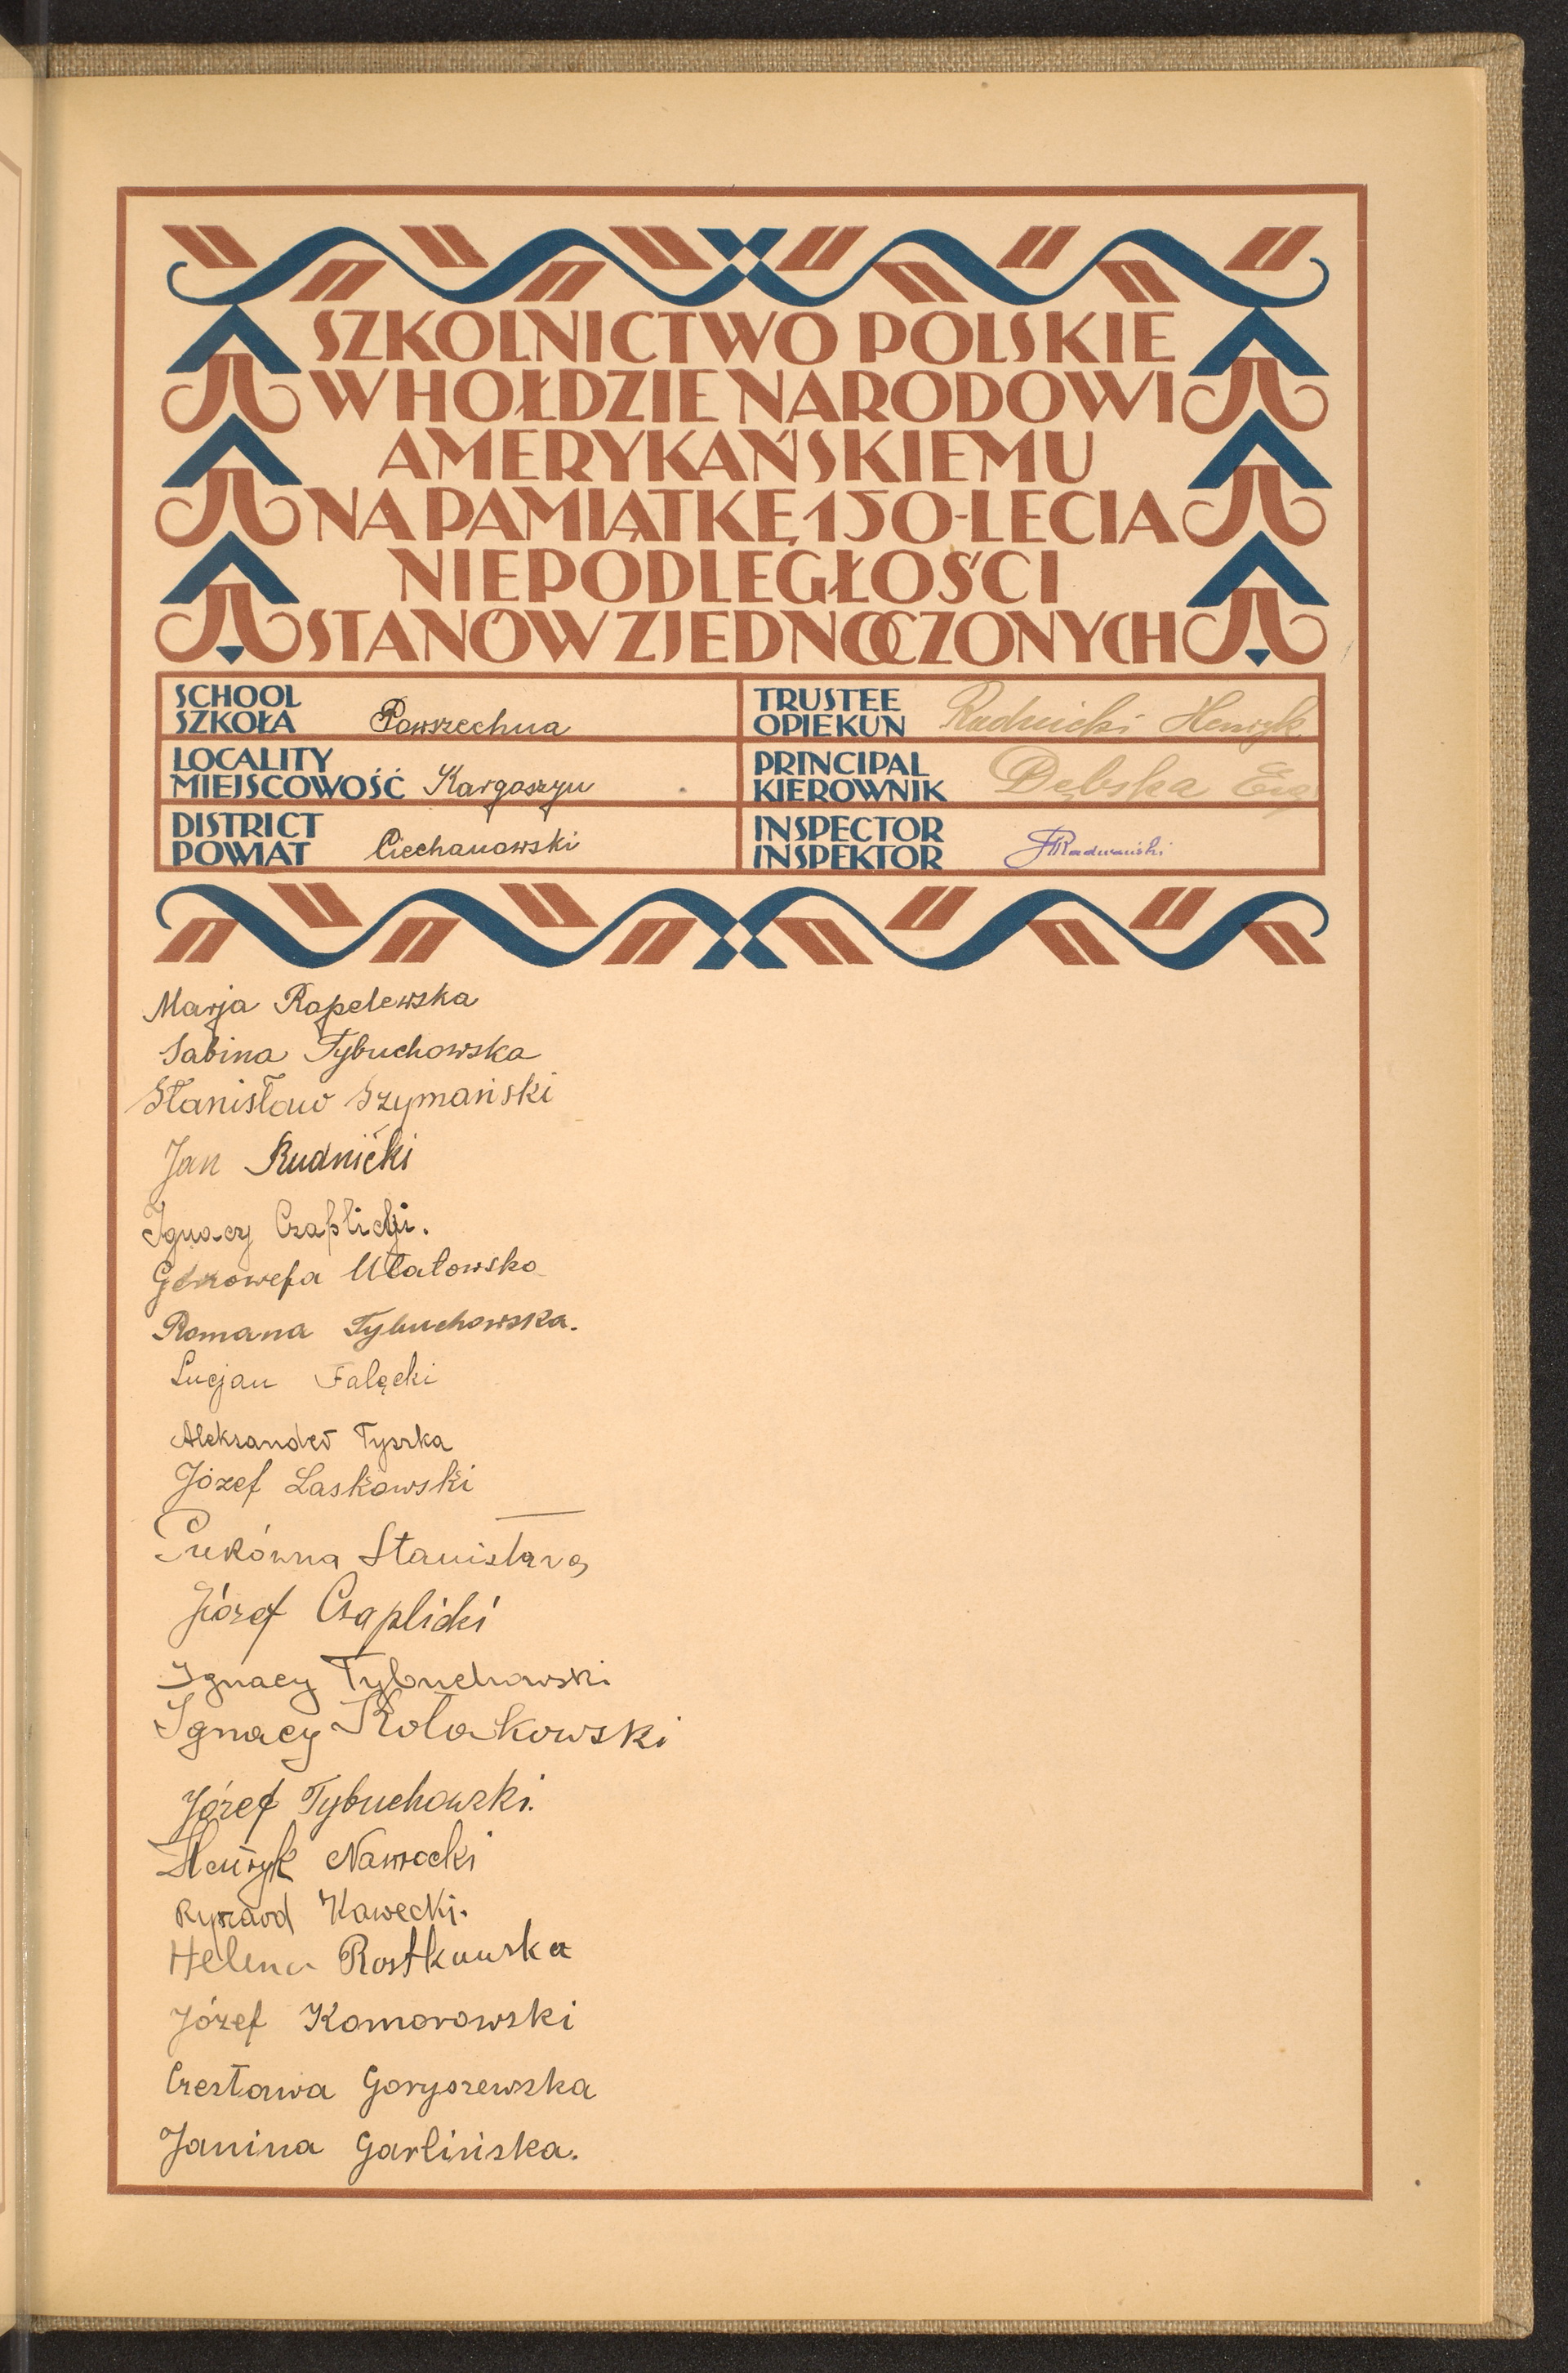 SZKOLNICTWO POLSKIE
W HOŁDZIE NARODOWI
AMERYKAŃSKIEMU
NA PAMIĄTKĘ 150-LECIA
NIEPODLEGŁOŚCI
STANÓW ZJEDNOCZONYCH
SCHOOL
SZKOŁA Powszechna
TRUSTEE
OPIEKUN Rudnicki Henryk
LOCALITY
MIEJSCOWOŚĆ Kargoszyn
PRINCIPAL
KIEROWNIK Dębska
DISTRICT
POWIAT Ciechanowski
INSPECTOR
INSPEKTOR Radwański
Marja Rapelewska
Sabina Tybuchowska
Stanisław Szymański
Jan Rudnicki
Ignacy Czaplicki.
Genowefa Ułatowska
Romana Tybuchowska.
Lucjan Falęcki
Aleksander Tyszka
Józef Laskowski
Stanisława
Józef Czaplicki
Ignacy Tybuchowski
Ignacy Kołakowski
Józef Tybuchowski.
Henryk Nawrocki
Ryszard Kawecki.
Helena Rostkowska
Józef Komorowski
Czesława Goryszewska
Janina Garlińska.